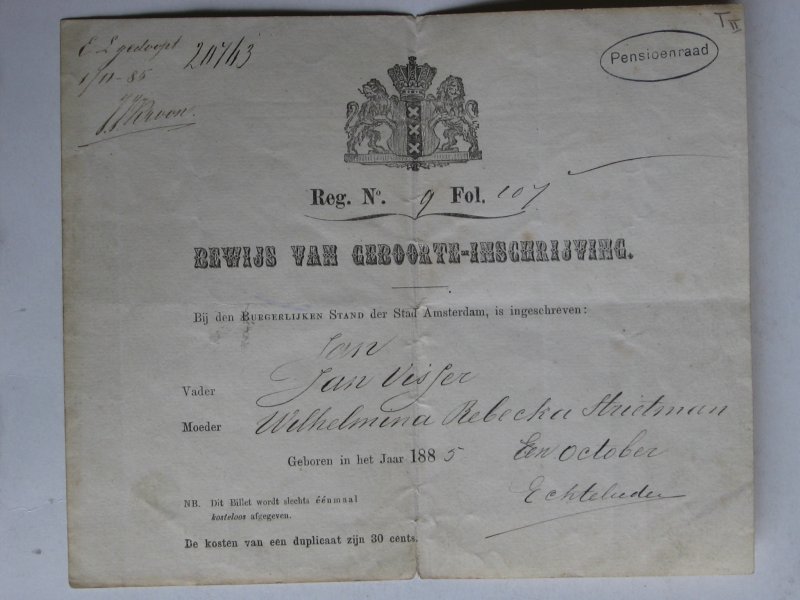 E L gedoopt
20763
1/11-85
Pensioenraad
T II
Reg. No. 9 Fol. 107
BEWIJS VAN GEBOORTE-INSCHRIJVING.
Bij den BURGERLIJKEN STAND der Stad Amsterdam, is ingeschreven:
Jan
Vader Jan Visser
Moeder Wilhelmina Rebecka Strietman
Geboren in het Jaar 1885 Een October
Echtelieden
NB. Dit Billet wordt slechts éénmaal
kosteloos afgegeven.
De kosten van een duplicaat zijn 30 cents.